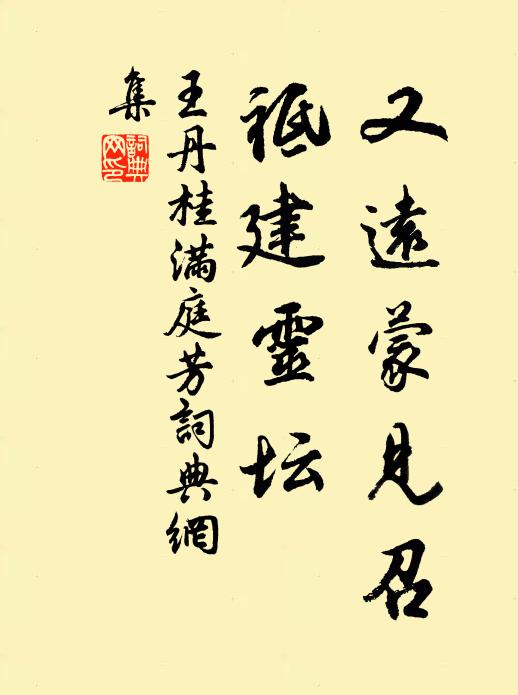 又遠蒙見召
祗建靈坛
王丹桂滿庭芳詞典網
集
詞典
网印